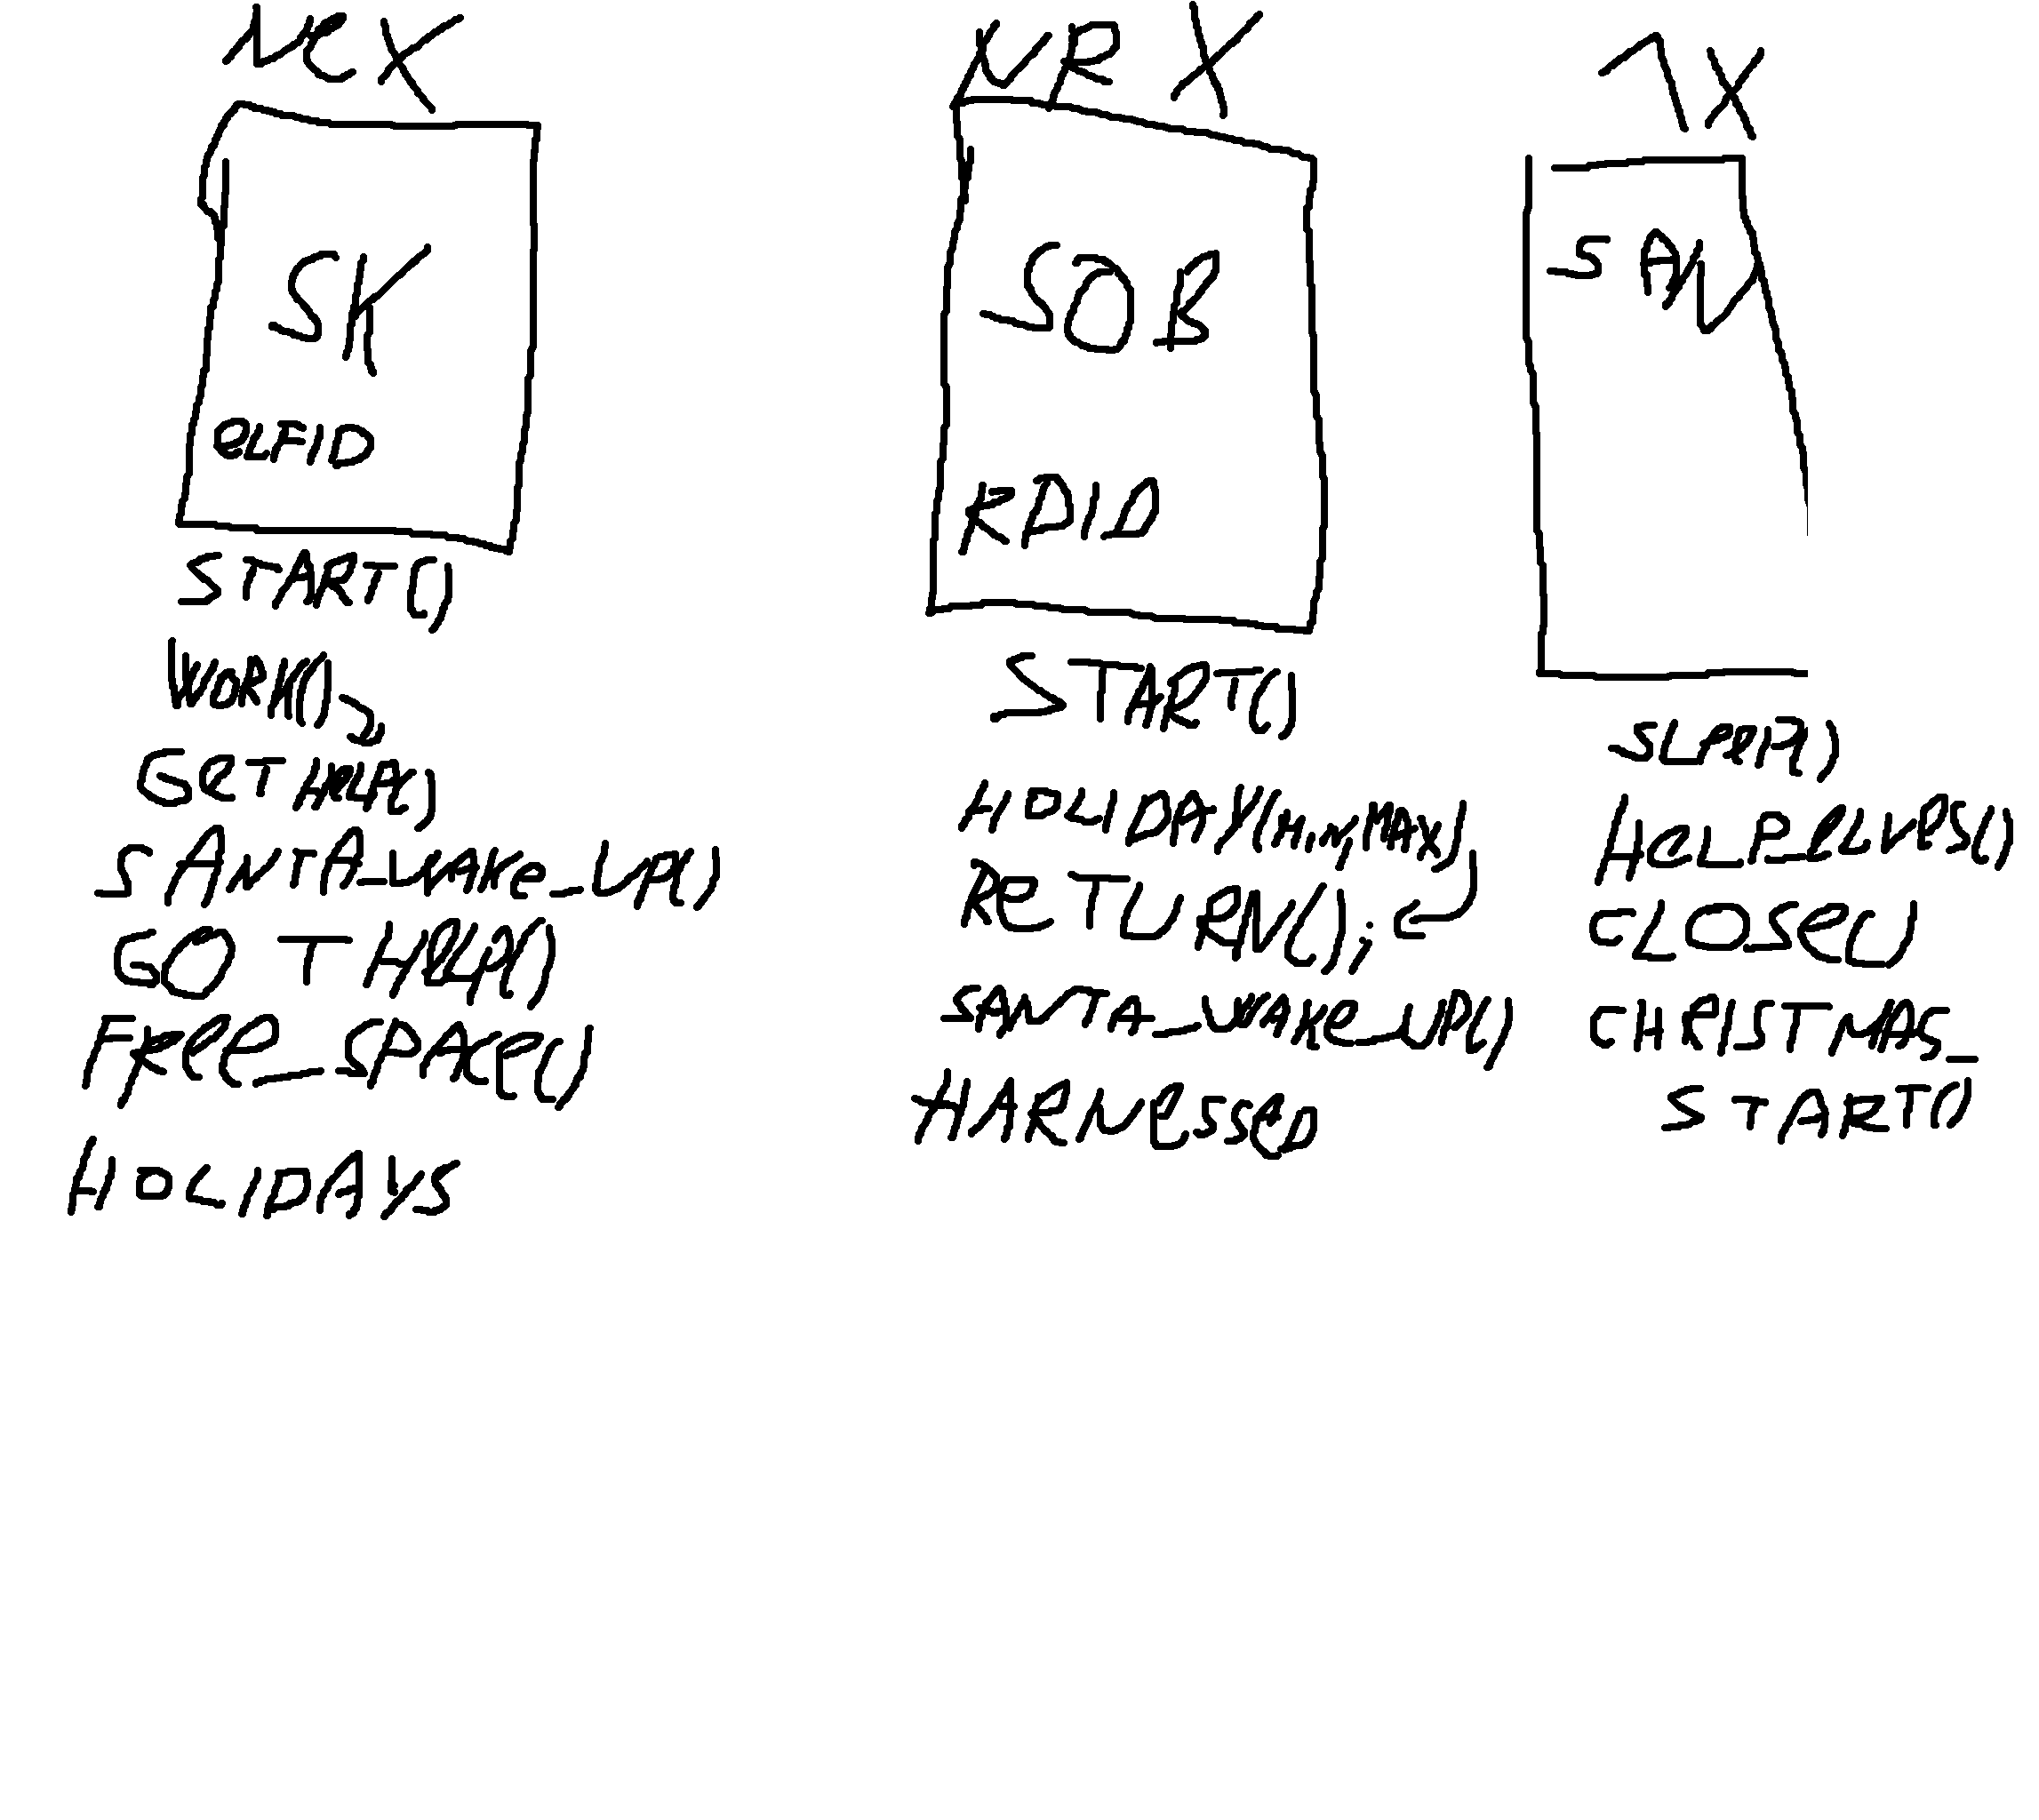 NE X
SK
ELFID
START()
WORK();
GET HELP()
SANTA_WAKE_UP()
GOT HELP()
FREE_SPACE()
HOLIDAYS
NR X
SOB
RDID
START()
HOLIDAY(MIN,MAX)
RETURN();
SANTA_WAKE_UP()
HARNESSED
1X
SAN
SLEEP()
HELP_ELVES()
CLOSE()
CHRISTMAS_
START()